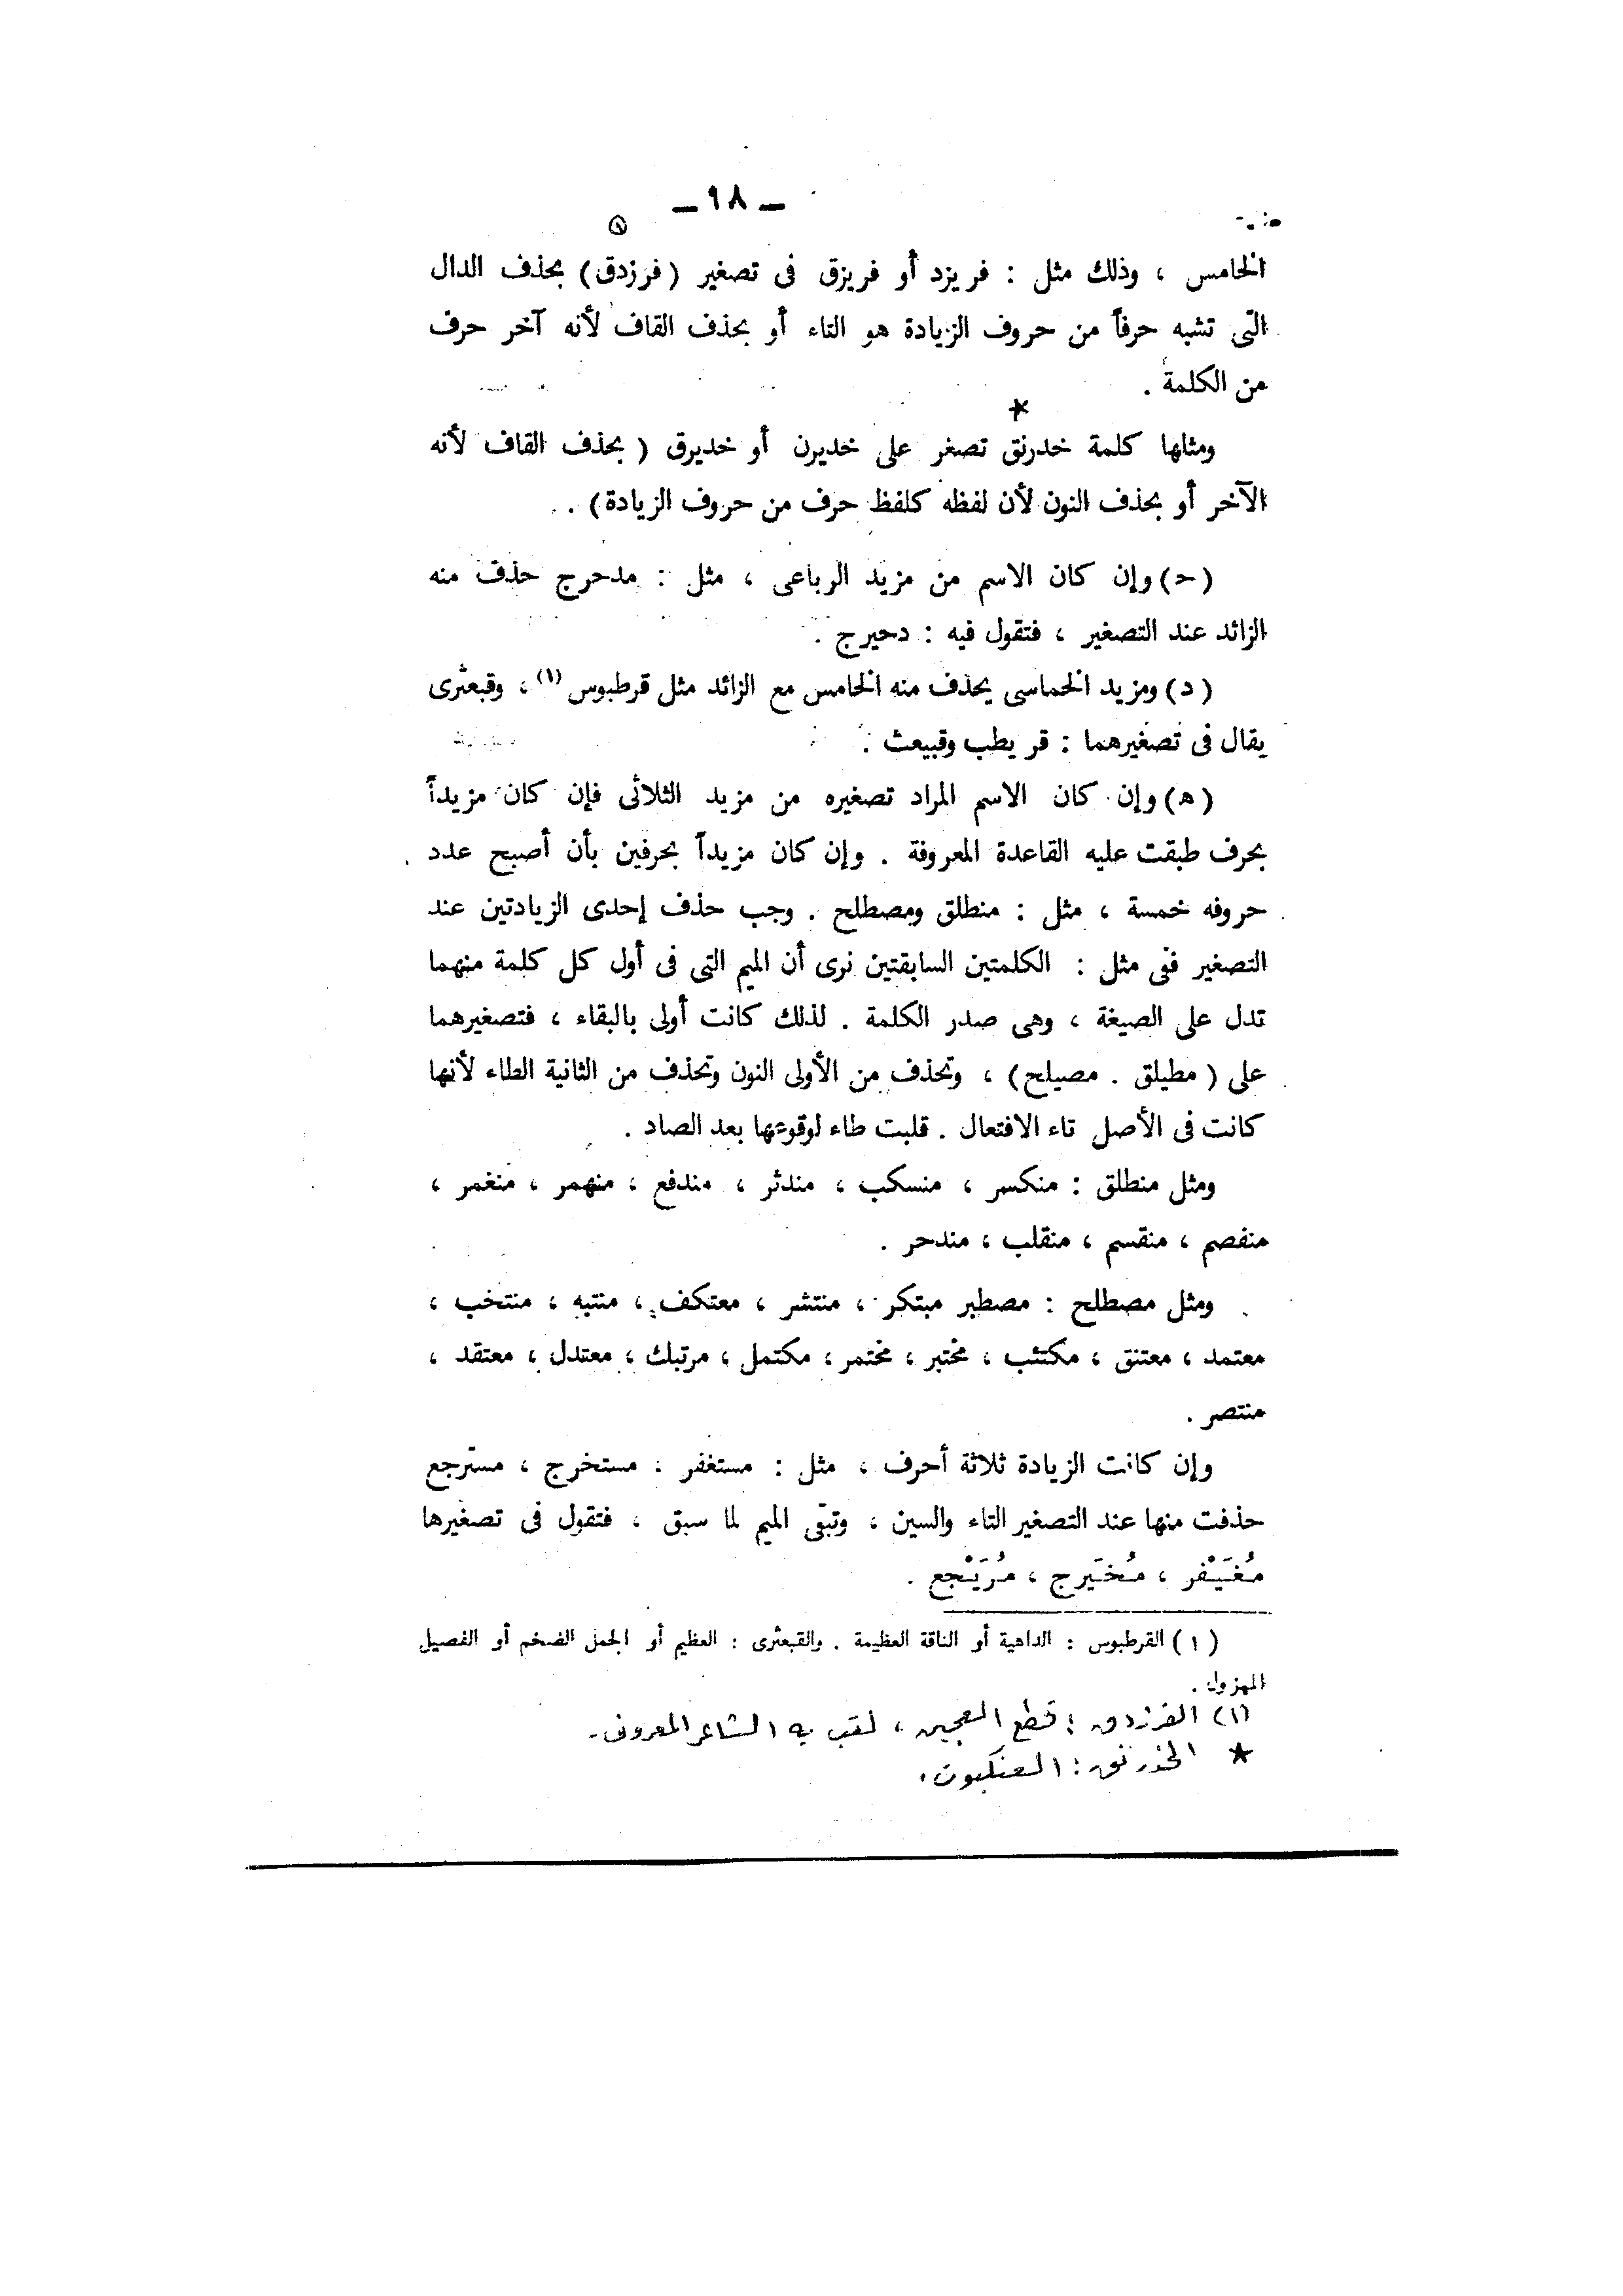 — ٩٨ —
الخامس ، وذلك مثل : فريزد أو فريزق فى تصغير (فرزدق) بحذف الدال
التى تشبه حرفاً من حروف الزيادة هو التاء أو بحذف القاف لأنه آخر حرف
من الكلمة .
ومثلها كلمة خدرنق تصغر على خديرن أو خديرق ( بحذف القاف لأنه
الآخر أو بحذف النون لأن لفظه كلفظ حرف من حروف الزيادة) .
(ح) وإن كان الاسم من مزيد الرباعى ، مثل : مدحرج حذف منه
الزائد عند التصغير ، فتقول فيه : دحيرج .
(د) ومزيد الخماسى يحذف منه الخامس مع الزائد مثل قرطبوس (١) ، وقبعثرى
يقال فى تصغيرهما : قريطب وقبيعث .
(ه) وإن كان الاسم المراد تصغيره من مزيد الثلاثى فإن كان مزيداً
بحرف طبقت عليه القاعدة المعروفة . وإن كان مزيداً بحرفين بأن أصبح عدد
حروفه خمسة ، مثل : منطلق ومصطلح . وجب حذف إحدى الزيادتين عند
التصغير ففى مثل : الكلمتين السابقتين نرى أن الميم التى فى أول كل كلمة منهما
تدل على الصيغة ، وهى صدر الكلمة . لذلك كانت أولى بالبقاء ، فتصغيرهما
على ( مطيلق . مصيلح) ، وتحذف من الأولى النون وتحذف من الثانية الطاء لأنها
كانت فى الأصل تاء الافتعال . قلبت طاء لوقوعها بعد الصاد .
ومثل منطلق : منكسر ، منسكب ، مندثر ، مندفع ، منهمر ، منغمر ،
منفصم ، منقسم ، منقلب ، مندحر .
ومثل مصطلح : مصطبر مبتكر ، منتشر ، معتكف ، منتبه ، منتخب ،
معتمد ، معتنق ، مكتئب ، مختبر ، مختمر ، مكتمل ، مرتبك ، معتدل ، معتقد ،
منتصر .
وإن كانت الزيادة ثلاثة أحرف ، مثل : مستغفر ، مستخرج ، مسترجع
حذفت منها عند التصغير التاء والسين ، وتبقى الميم لما سبق ، فتقول فى تصغيرها
مُغَيْفر ، مُخَيرج ، مُرَيْجع .
(١) القرطبوس : الداهية أو الناقة العظيمة . والقبعثرى : العظيم أو الجمل الضخم أو الفصيل
المهزول .
(١) الفرزدق : قطع العجين ، لقب به الشاعر المعروف .
* الخدرنق : العنكبوت .